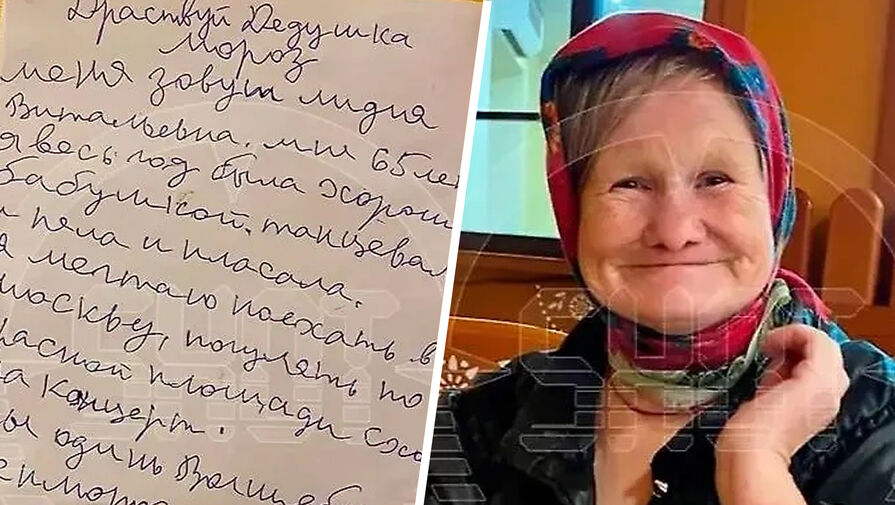 Драствуй Дедушка
мороз
меня зовут лидия
Витальевна. мне 65 ле
я весь год была хорош
бабушкой. танцевал
пела и плясала.
я мечтаю поехать в
москву, погулять по
расной площади схо
а концерт.
один Волшеб